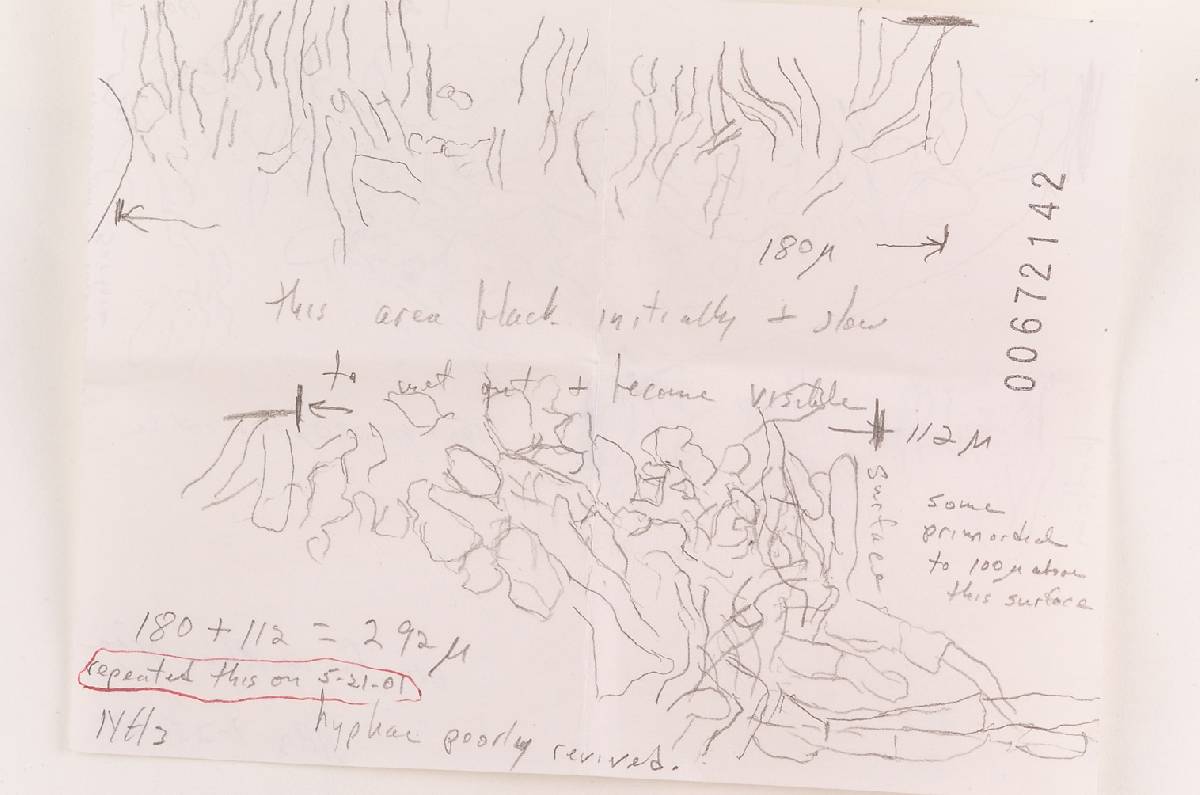 180 μ
00672142
this area black initially + slow
to wet out + become visible
112 μ
surface
some
primordia
to 100 μ above
this surface
180 + 112 = 292 μ
repeated this on 5-21-01
NH3
hyphae poorly revived.